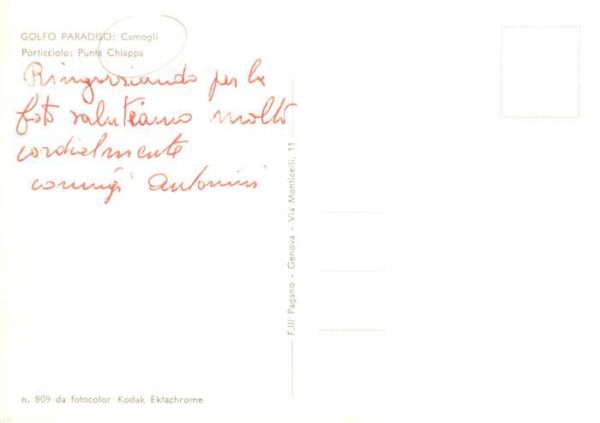 GOLFO PARADISO: Camogli
Porticciolo: Punta Chiappa
Ringraziando per la
foto salutiamo molto
cordialmente
coniugi Antonini
F.lli Pagano - Genova - Via Monticelli, 11
n. 809 da fotocolor Kodak Ektachrome